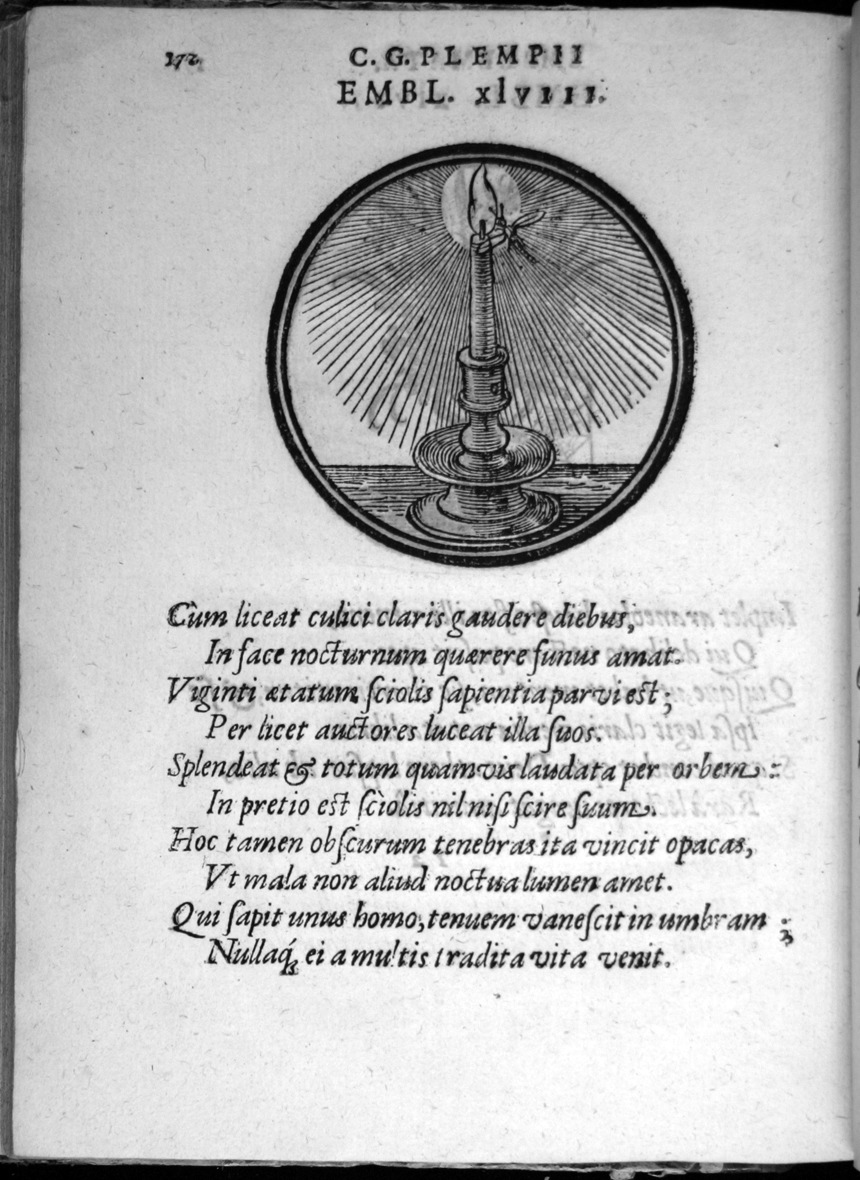 172
C. G. PLEMPII
EMBL. xlVIII.
Cùm liceat culici claris gaudere diebus,
In face nocturnum quærere funus amat.
Viginti ætatum ſciolis ſapientia parvi est;
Per licet auctores luceat illa ſuos.
Splendeat & totum quamvis laudata per orbem:
In pretio est ſciolis nil niſi ſcire ſuum.
Hoc tamen obſcurum tenebras ita vincit opacas,
Vt mala non aliud noctua lumen amet.
Qui ſapit unus homo, tenuem vaneſcit in umbram;
Nullaq́ꝫ ei a multis tradita vita venit.